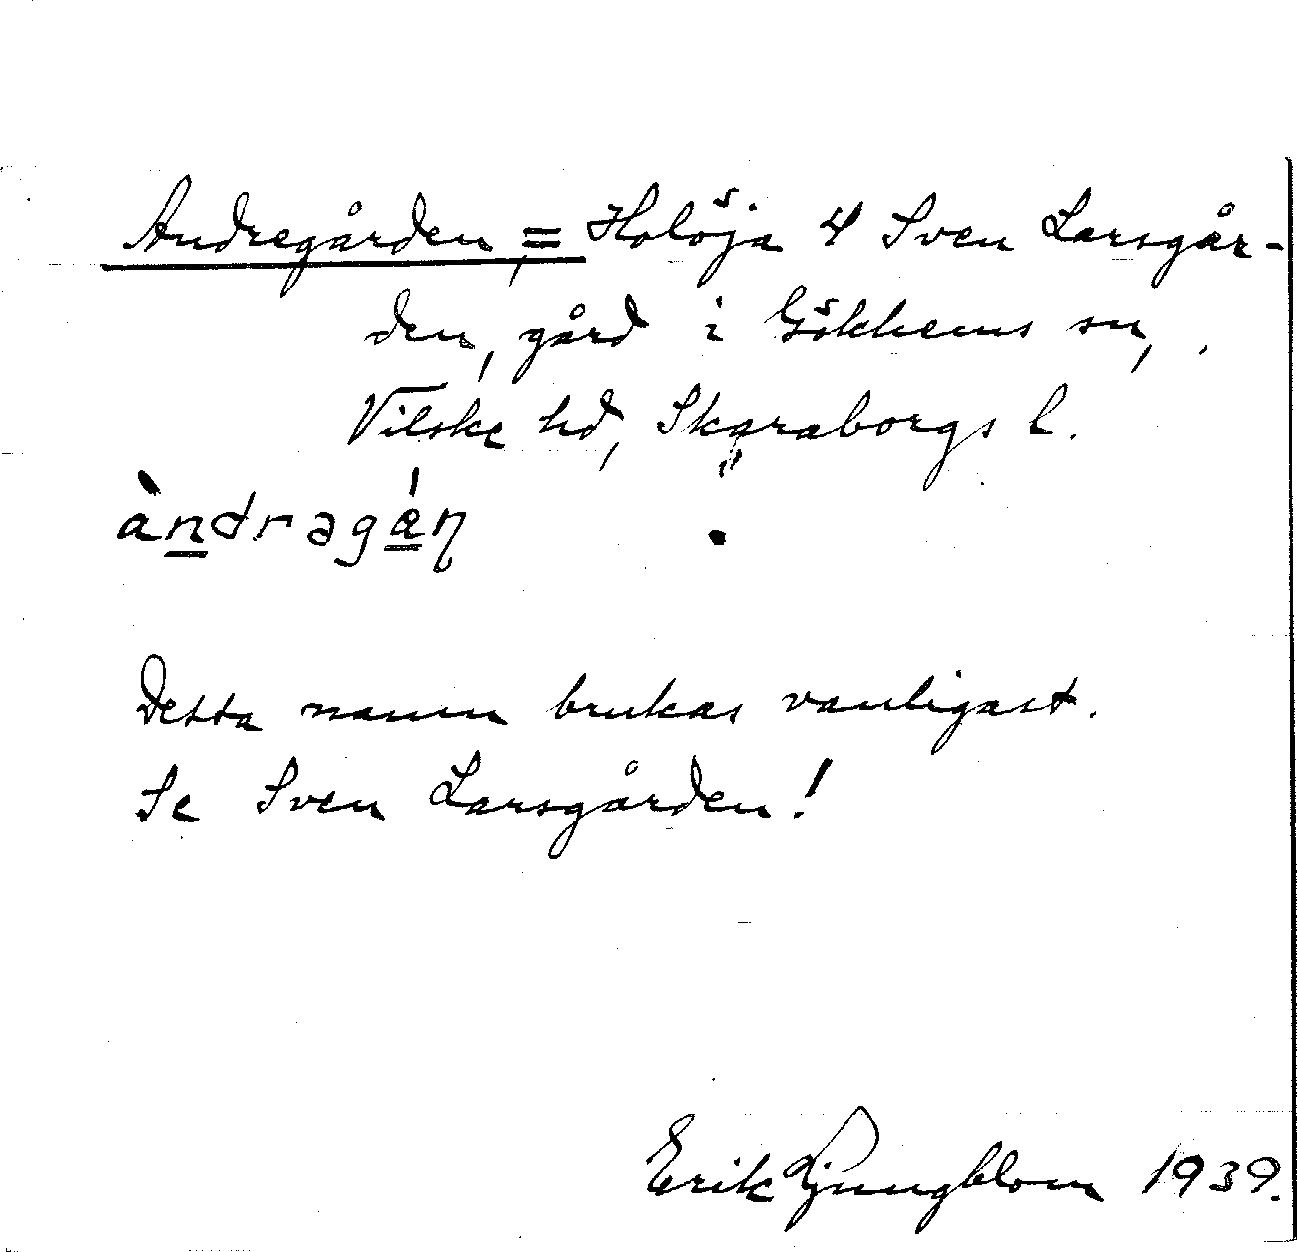 Andregården, = Holöja 4 Sven Larsgår-
den, gård i Gökhems sn,
Vilske hd, Skaraborgs l.
àndragán
Detta namn brukas vanligast.
Se Sven Larsgården!
Erik Ljungblom 1939.